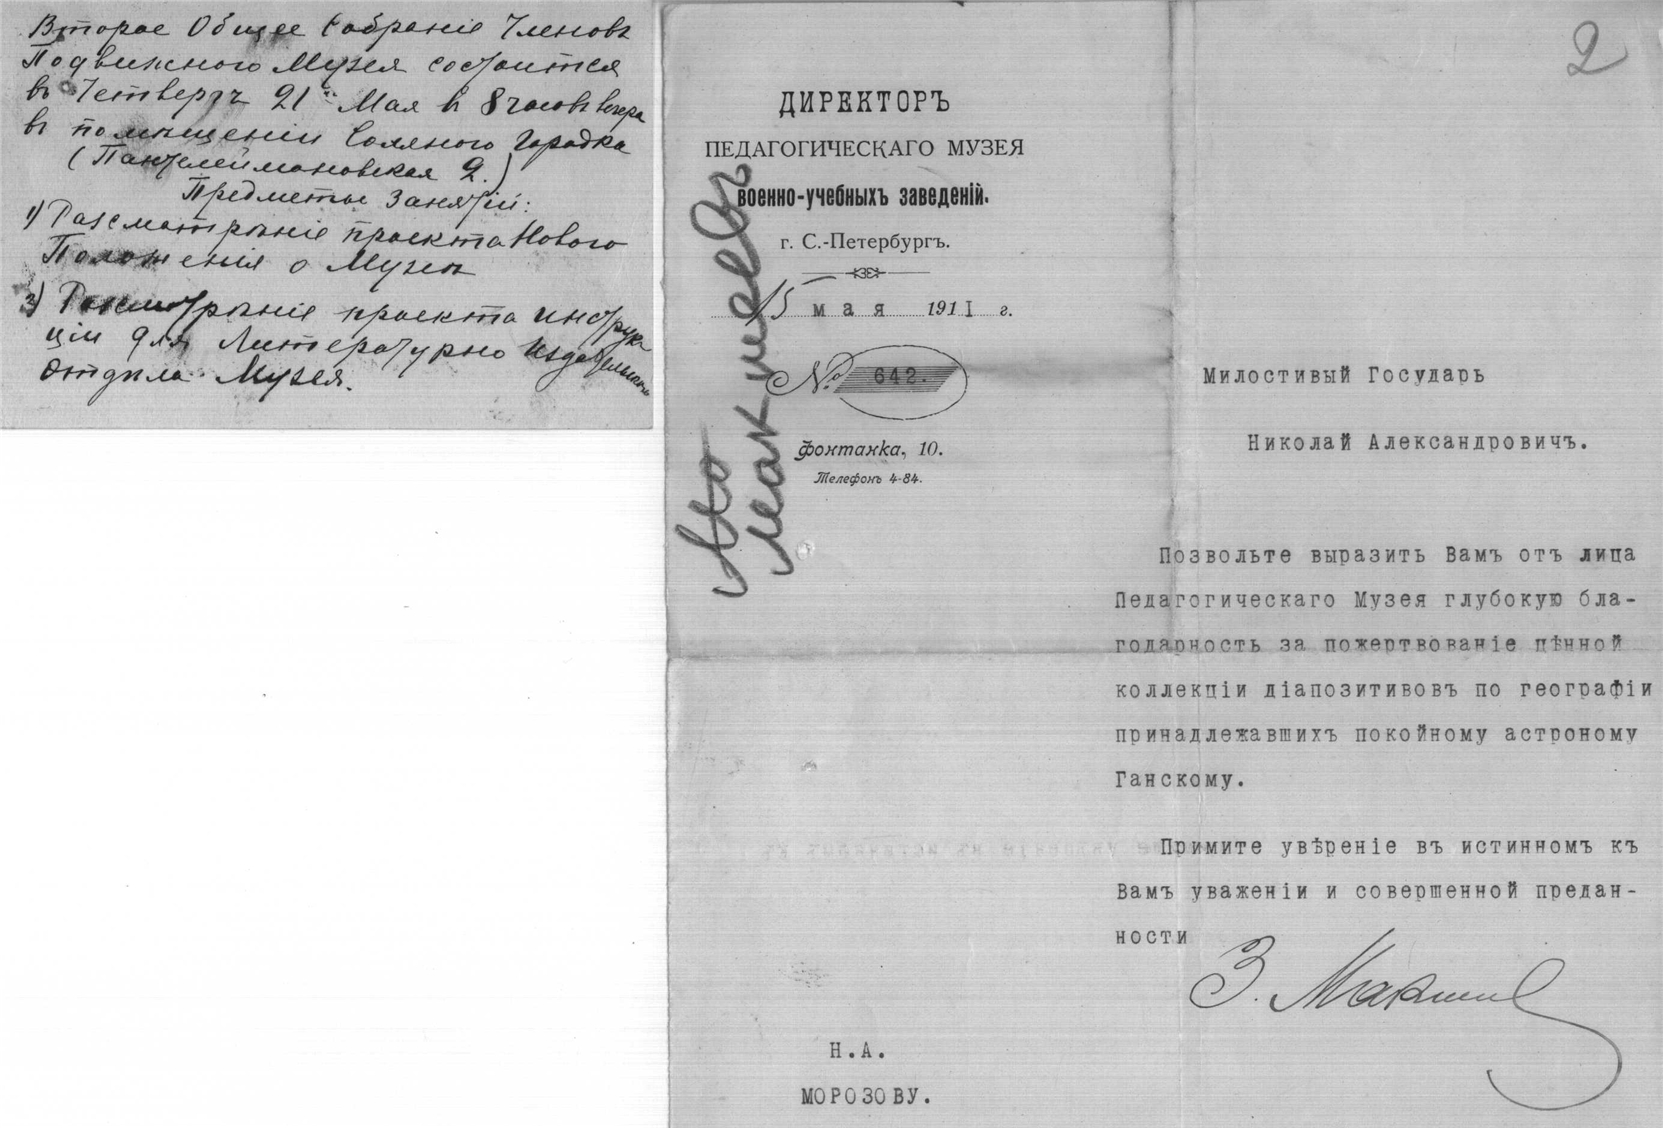 Второе Общее Собраніе Членовъ
Подвижного Музея состоится
въ Четвергъ 21 Мая въ 8 часовъ вечера
въ помѣщеніи Соляного Городка
(Пантелеймоновская 2.)
Предметы Занятій:
1) Разсмотрѣніе проекта Нового
Положенія о Музеѣ
2) Разсмотрѣніе проекта инструк
ціи для Литературно Издательскаго
Отдѣла Музея.
2
ДИРЕКТОРЪ
ПЕДАГОГИЧЕСКАГО МУЗЕЯ
военно-учебныхъ заведеній.
г. С.-Петербургъ.
15 мая 1911 г.
№ 642.
Фонтанка, 10.
Телефонъ 4-84.
Макшеевъ
Милостивый Государь
Николай Александровичъ.
Позвольте выразить Вамъ отъ лица
Педагогическаго Музея глубокую бла-
годарность за пожертвованіе цѣнной
коллекціи діапозитивовъ по географіи
принадлежавшихъ покойному астроному
Ганскому.
Примите увѣреніе въ истинномъ къ
Вамъ уваженіи и совершенной предан-
ности
З. Макшеев
Н.А.
МОРОЗОВУ.